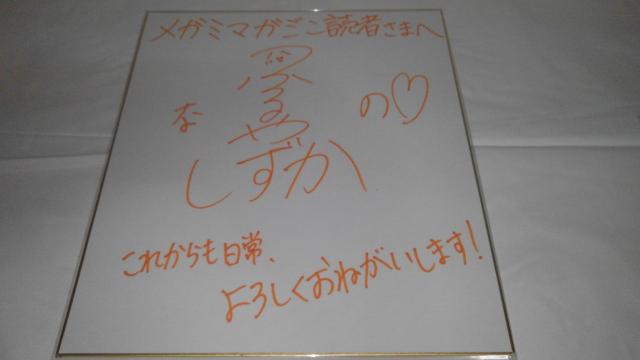 メガミマガジン読者さまへ
ふるや
なの♡
しずか
これからも日常、
よろしくおねがいします!